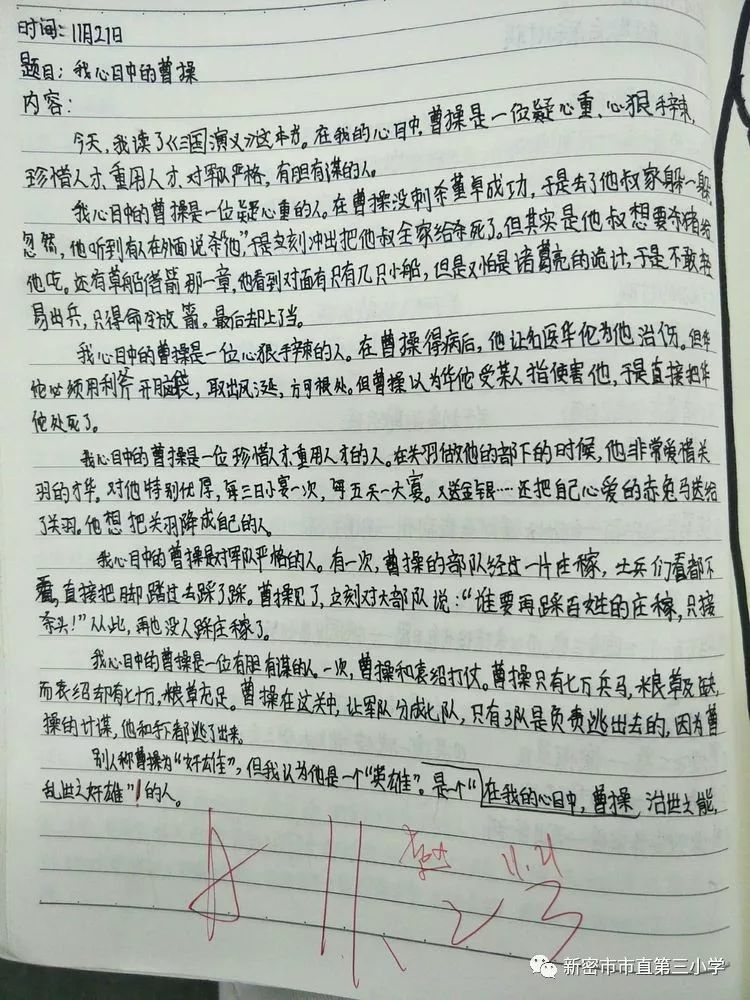 时间：11月21日
题目：我心目中的曹操
内容：
今天，我读了《三国演义》这本书。在我的心目中，曹操是一位疑心重、心狠手辣，
珍惜人才、重用人才、对军队严格，有胆有谋的人。
我心目中的曹操是一位疑心重的人。在曹操没刺杀董卓成功，于是去了他叔家躲一躲，
忽然，他听到有人在外面说杀他，”于是立刻冲出把他叔全家给杀死了。但其实是他叔想要杀猪给
他吃。还有草船借箭那一章，他看到对面有只有几只小船，但是又怕是诸葛亮的诡计，于是不敢轻
易出兵，只得命令放箭。最后却上了当。
我心目中的曹操是一位心狠手辣的人。在曹操得病后，他让名医华佗为他治伤。但华
佗必须用利斧开脑袋，取出风涎，方可根处。但曹操以为华佗受某人指使害他，于是直接把华
佗处死了。
我心目中的曹操是一位珍惜人才、重用人才的人。在关羽做他的部下的时候，他非常爱惜关
羽的才华。对他特别优厚，每三日小宴一次，每五天一大宴。又送金银……还把自己心爱的赤兔马送给
了关羽。他想把关羽降成自己的人。
我心目中的曹操是对军队严格的人。有一次，曹操的部队经过一片庄稼，士兵们看都不
看，直接把脚踏过去踩了踩。曹操见了，立刻对大部队说：“谁要再踩百姓的庄稼，只接
杀头！”从此，再也没人踩庄稼了。
我心目中的曹操是一位有胆有谋的人。一次，曹操和袁绍打仗。曹操只有七万兵马，粮草及缺，
而袁绍却有七十万，粮草充足。曹操在这关中，让军队分成七队，只有3队是负责逃出去的，因为曹
操的计谋，他和手下都逃了出来。
别人称曹操为“奸雄”，但我认为他是一个“英雄”。是个“在我的心目中，曹操 治世之能，
乱世之奸雄”的人。
11.21
新密市市直第三小学